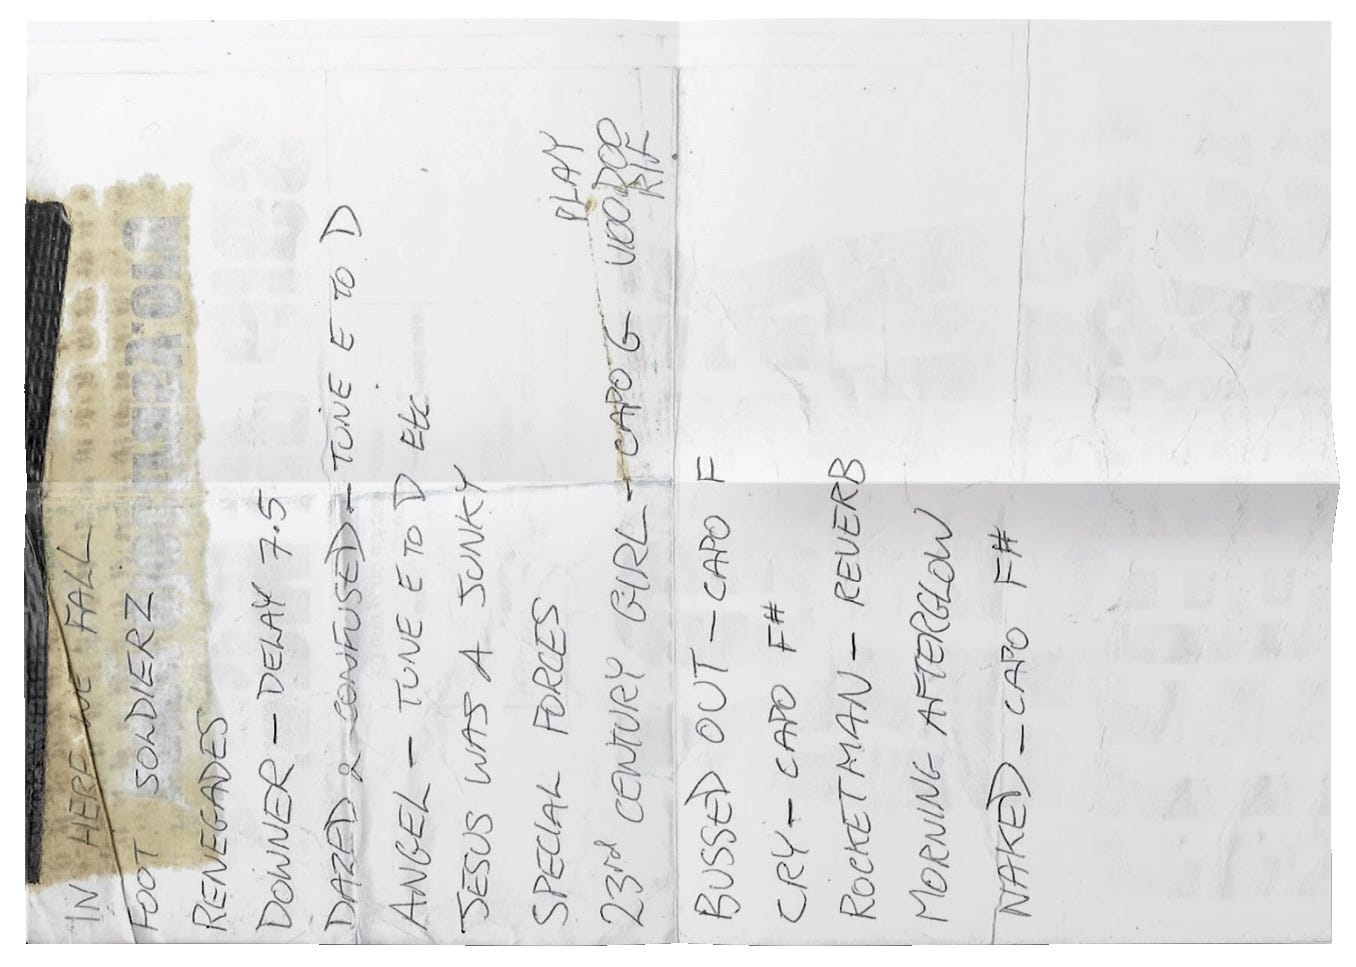 IN HERE WE FALL
FOOT SOLDIERZ
RENEGADES
DOWNER - DELAY 7.5
DAZED & CONFUSED - TUNE E TO D
ANGEL - TUNE E TO D Etc
JESUS WAS A JUNKY
SPECIAL FORCES
23rd CENTURY GIRL - CAPO G - PLAY VOODOO RIF
BUSSED OUT - CAPO F
CRY - CAPO F#
ROCKETMAN - REVERB
MORNING AFTERGLOW
NAKED - CAPO F#